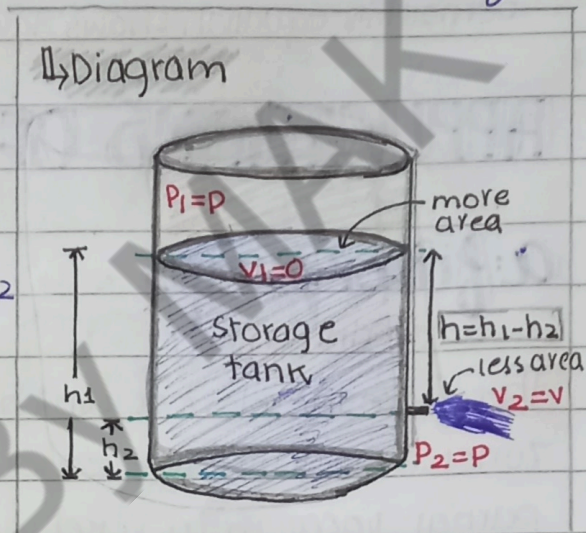 Diagram
P₁=P
more
area
V₁=0
2
storage
tank
h=h₁-h₂
less area
h₁
V₂=V
h₂
P₂=P
BY MAK